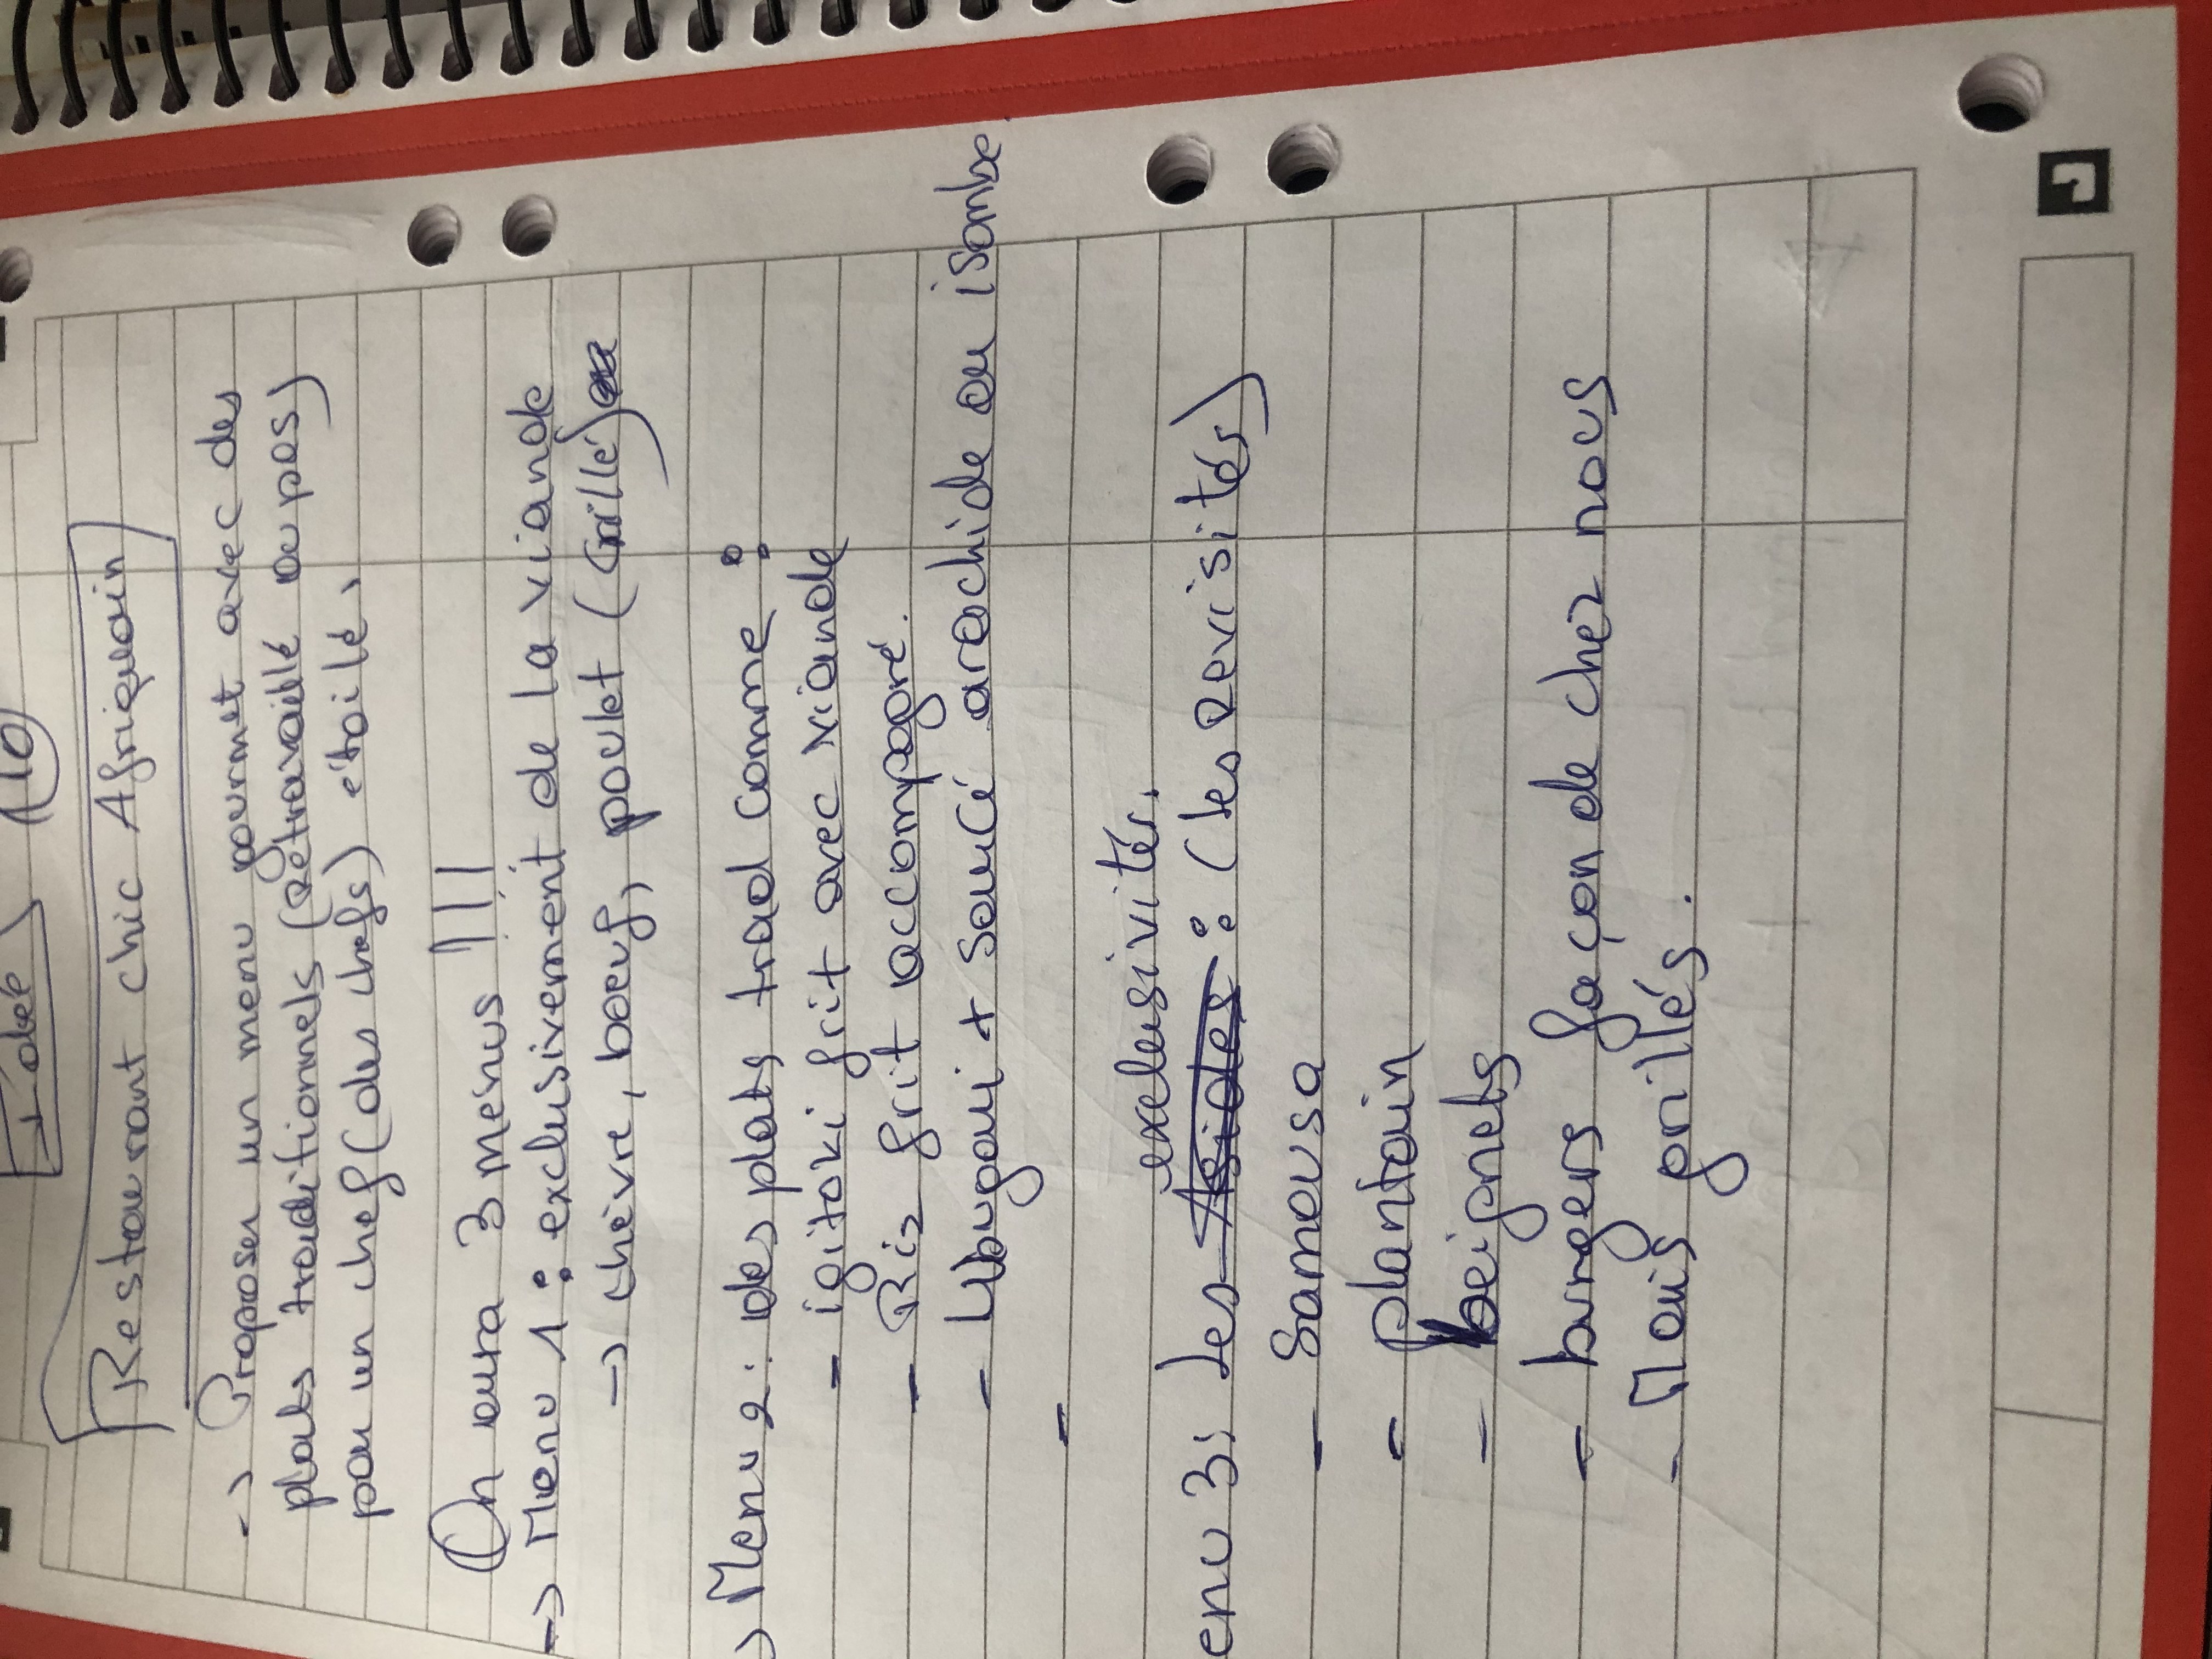 Idée 10
Restaurant chic Afriquain
-> Proposer un menu gourmet avec des
plats traditionnels (Retravaillé ou pas)
par un chef (des chefs) étoilé.
On aura 3 menus !!!
-> Menu 1 : exclusivement de la viande
-> chèvre, boeuf, poulet (Grillé)
Menu 2 : des plats trad comme :
- igitoki frit avec viande
- Riz frit accompagné.
- Ubugari + Sauce arachide ou isombe
-
exclusivités.
enu 3 : Les : (les Revisités)
- Samousa
- plantain
- beignets
- burgers façon de chez nous
- Mais grillés.